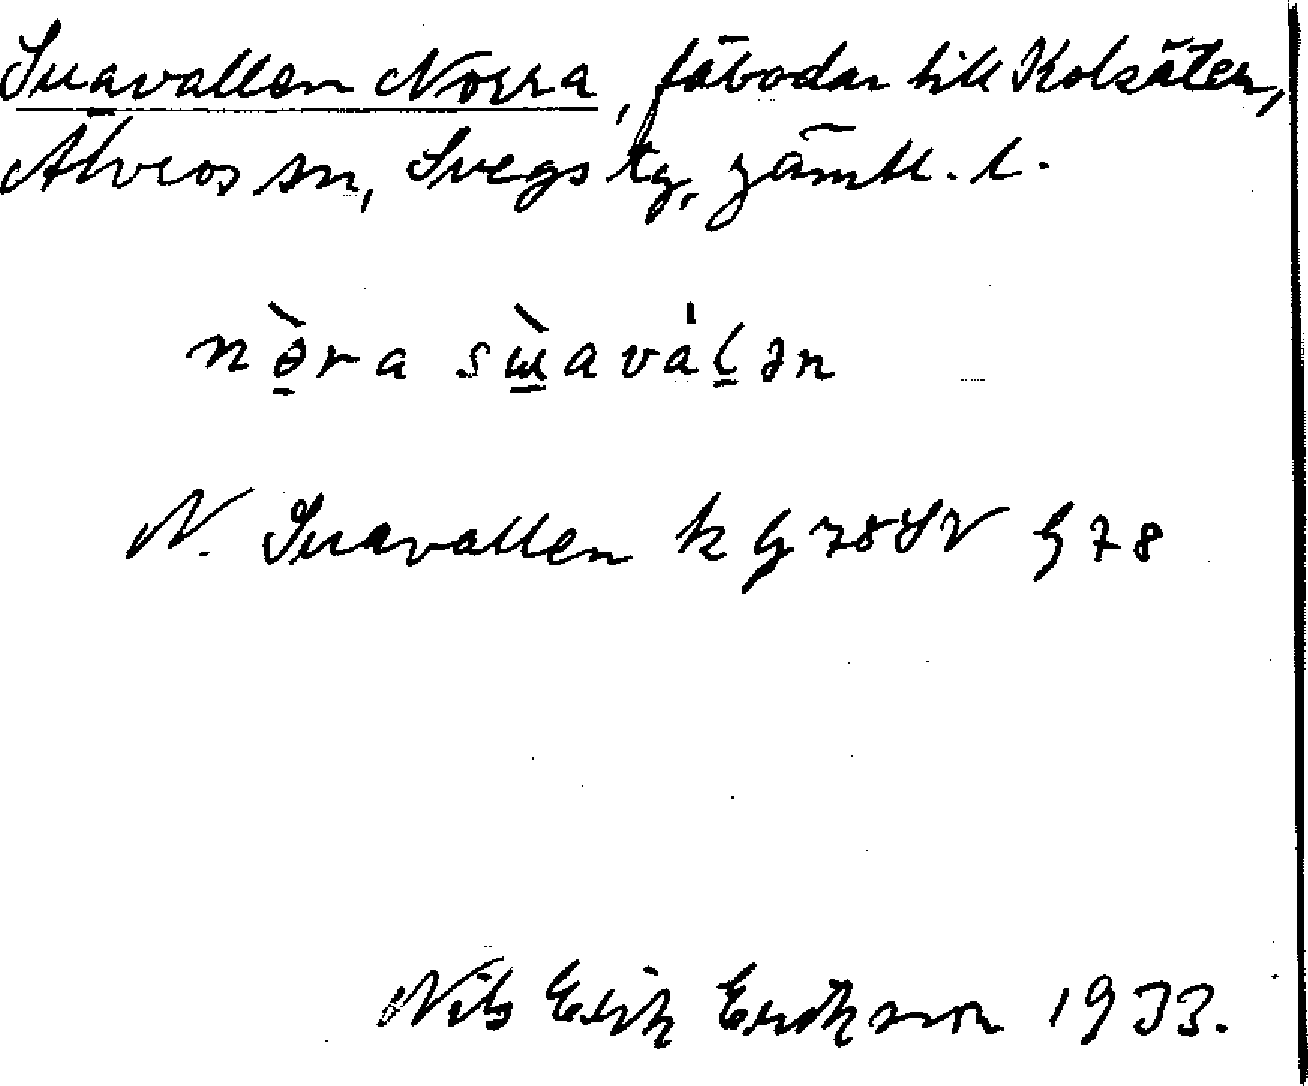 Suavallen Norra, fäbodar till Kolsäter,
Älvros sn, Svegs tg, Jämtl. l.
nò̱ra sɯ̱̀aváḻən
N. Suavallen k G 78 SV G 78
Nils Erik Erikson 1933.